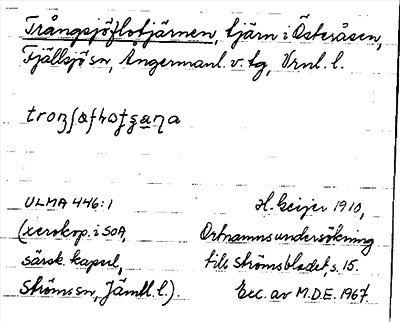 Trångsjöflotjärnen, tjärn i Österåsen,
Fjällsjö sn, Ångermanl. v. tg, Vrnl. l.
ULMA 446:1
(xerokop. i SOA,
särsk. kapsel,
Ströms sn, Jämtl. l.).
H. Geijer 1910,
Ortnamnsundersökning
till Strömsbladet, s. 15.
Exc. av M.D.E. 1967.